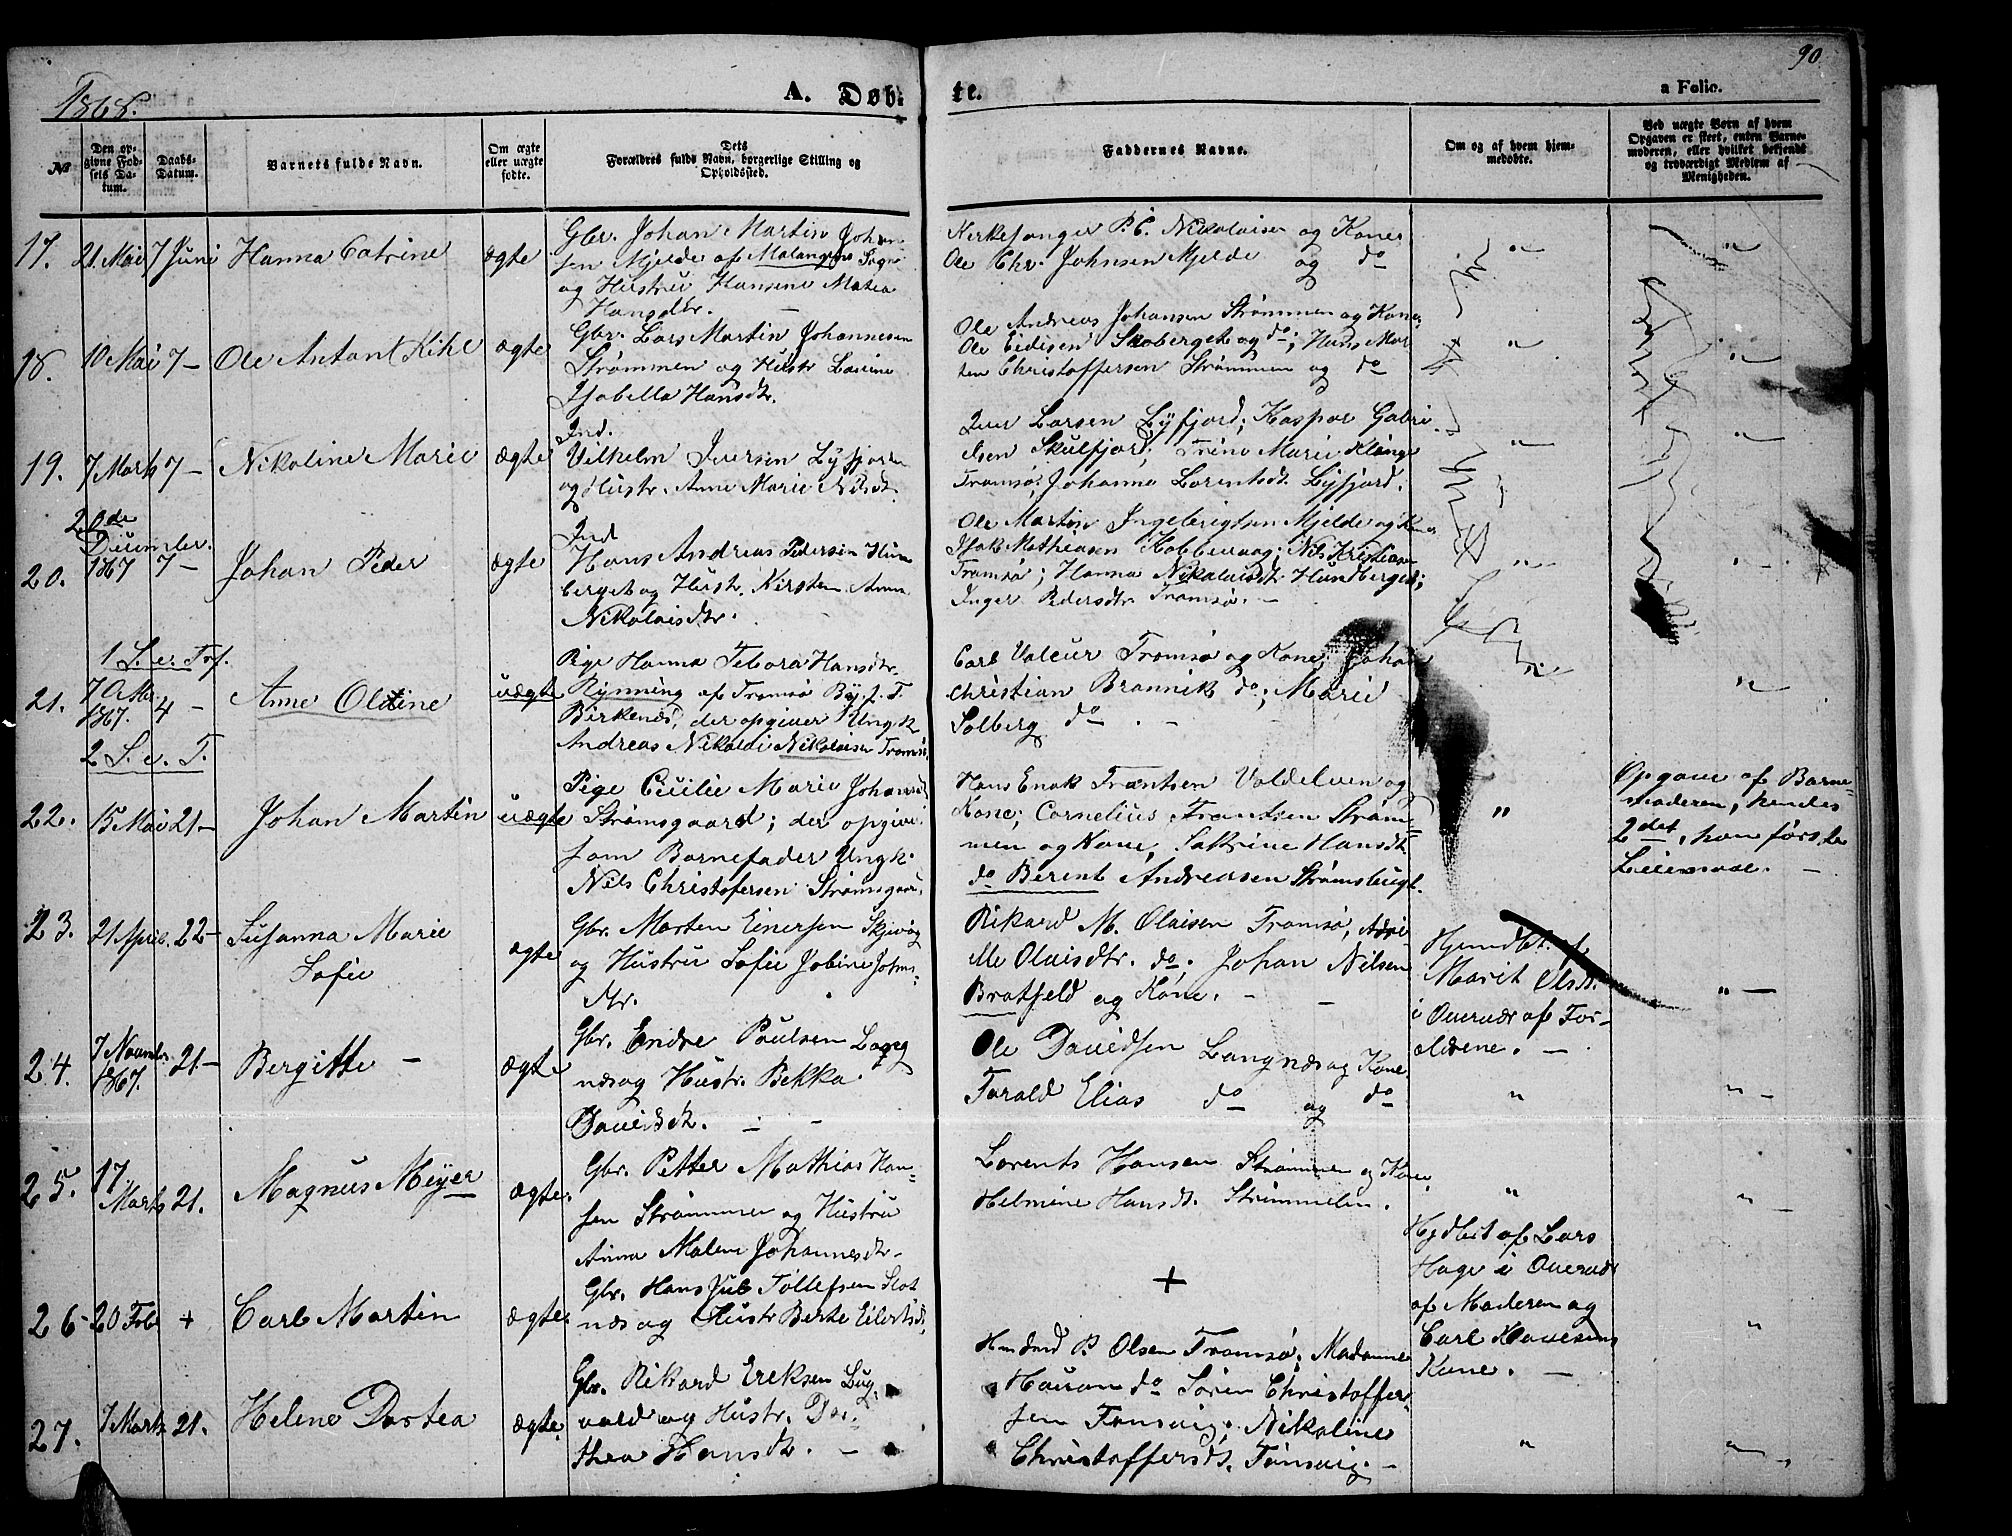 1868.
A. Døb-
te.
90
a Folio.
№
Den op-
givne Fød-
sels Da-
tum.
Daabs-
Datum.
Barnets fulde Navn.
Om ægte
eller uægte
fødte.
Dets
Forældres fulde Navn, borgerlige Stilling og
Opholdssted.
Faddernes Navne.
Om og af hvem hjem-
medøbte.
Ved uægte Børn af hvem
Opgaven er skeet, enten Barne-
moderen, eller hvilket bekjendt
og troværdigt Medlem af
Menigheden.
17. 21. Mai 7 Juni Hanna Catrine ægte
Gbr. Johan Martin Johan-
sen Mjelde af Malangens Sogn
og Hustru Hansine Matea
Hansdtr.
Kirkesanger P. C. Nikolaisen og Kone;
Ole Chr. Johnsen Mjelde og do
18. 10 Mai 7 — Ole Antant Kihl ægte
Gbr. Lars Martin Johannesen
Strømmen og Hustr
Isabella Hansdtr.
Ole Andreas Johansen Strømmen og Kone,
Ole Eidisen Skoberget og do; Hans Mor
ten Christoffersen Strømmen og do
19. 7 Marts 7 — Nikoline Marie ægte
Ind.
Vilhelm Iversen Lyfjord
og Hustr. Anne Marie Nilsdt.
Iver Larsen Lyfjord; Kaspar Gabri
elsen Skulfjord; Trine Marie
Tromsø, Johanna Lorentsdt Lyfjord.
20. 20de
December
1867 7 — Johan Peder ægte
Ind
Hans Andreas Pedersen Hun
berget og Hustr. Kirsten Anna
Nikolaisdtr.
Ole Martin Ingebrigtsen Mjelde og Kone,
Isak Mathiasen Kobbevaag; Nils Kristiansen
Tromsø; Hanna Nikolaisdtr Hundberget;
Inger Pedersdtr Tromsø. —
1 S. e. Tref.
21. 7 Octbr.
1867. 4 — Anne Oldine uægte
Pige Hanna Tebora Hansdtr.
Rynning af Tromsø By, f. T.
Birkenæs, der opgiver Ungk.
Andreas Nikolai Nikolaisen Tromsø
Carl Valeur Tromsø og Kone, Johan
Christian Brannik do; Marie
Solberg do. —
2 S. e. T.
22. 15 Mai 21 — Johan Martin uægte
Pige Cecilie Marie Johansdt
Strømsgaard; der opgiver
som Barnefader Ungk.
Nils Christofersen Strømsgaard.
Hans Enok Frantsen Valdelven og
Kone; Cornelius Frantsen Strøm-
men og Kone, Katrine Hansdt.
do Berent Andreasen Strømsbugt.
"
Opgave af Barne-
moderen, hendes
2det, hans første
Leiermaal. —
23. 21 April. 22 — Susanna Marie
Sofie ægte
Gbr. Morten Einersen Skjevåg
og Hustru Sofie Jobine Johns-
dtr.
Rikard M. Olaisen Tromsø,
Olaisdtr. do, Johan Nilsen
Bratfjeld og Kone. —
Hjemdbt. af
Marit Olsdt.
i Overvær af For-
ældrene. —
" —
24. 7 Novembr
1867. 21 — Bergitte — ægte
Gbr. Endre Poulsen Lang
næs og Hustr. Bekka
Davidsdt. —
Ole Davidsen Langnæs og Kone
Torald Elias do og do
" " —
25. 17.
Marts 21. Magnus Meyer ægte.
Gbr. Petter Mathias Han-
sen Strømmen og Hustru
Anna Malene Johannesdtr.
Lorents Hansen Strømmen og Kone,
Helmine Hansdt. Strømmelen.
" " —
26 20 Feb + Carl Martin ægte.
Gbr. Hans Jub Tollefsen Slet
næs og Hustr Berte Eilertsdt.
+
Hjdbt af Lars
Hage i Overvær
af Moderen og
Carl
Kone. —
"
27. 7 Marts 21. Helene Dortea ægte.
Gbr. Rikard Ereksen
vold og Hustr. Dor-
thea Hansdtr. —
P. Olsen Tromsø; Madame
Hauan do Søren Christoffer-
sen Tønsvig; Nikoline
Christoffersdt. Tønsvig. —
" " —